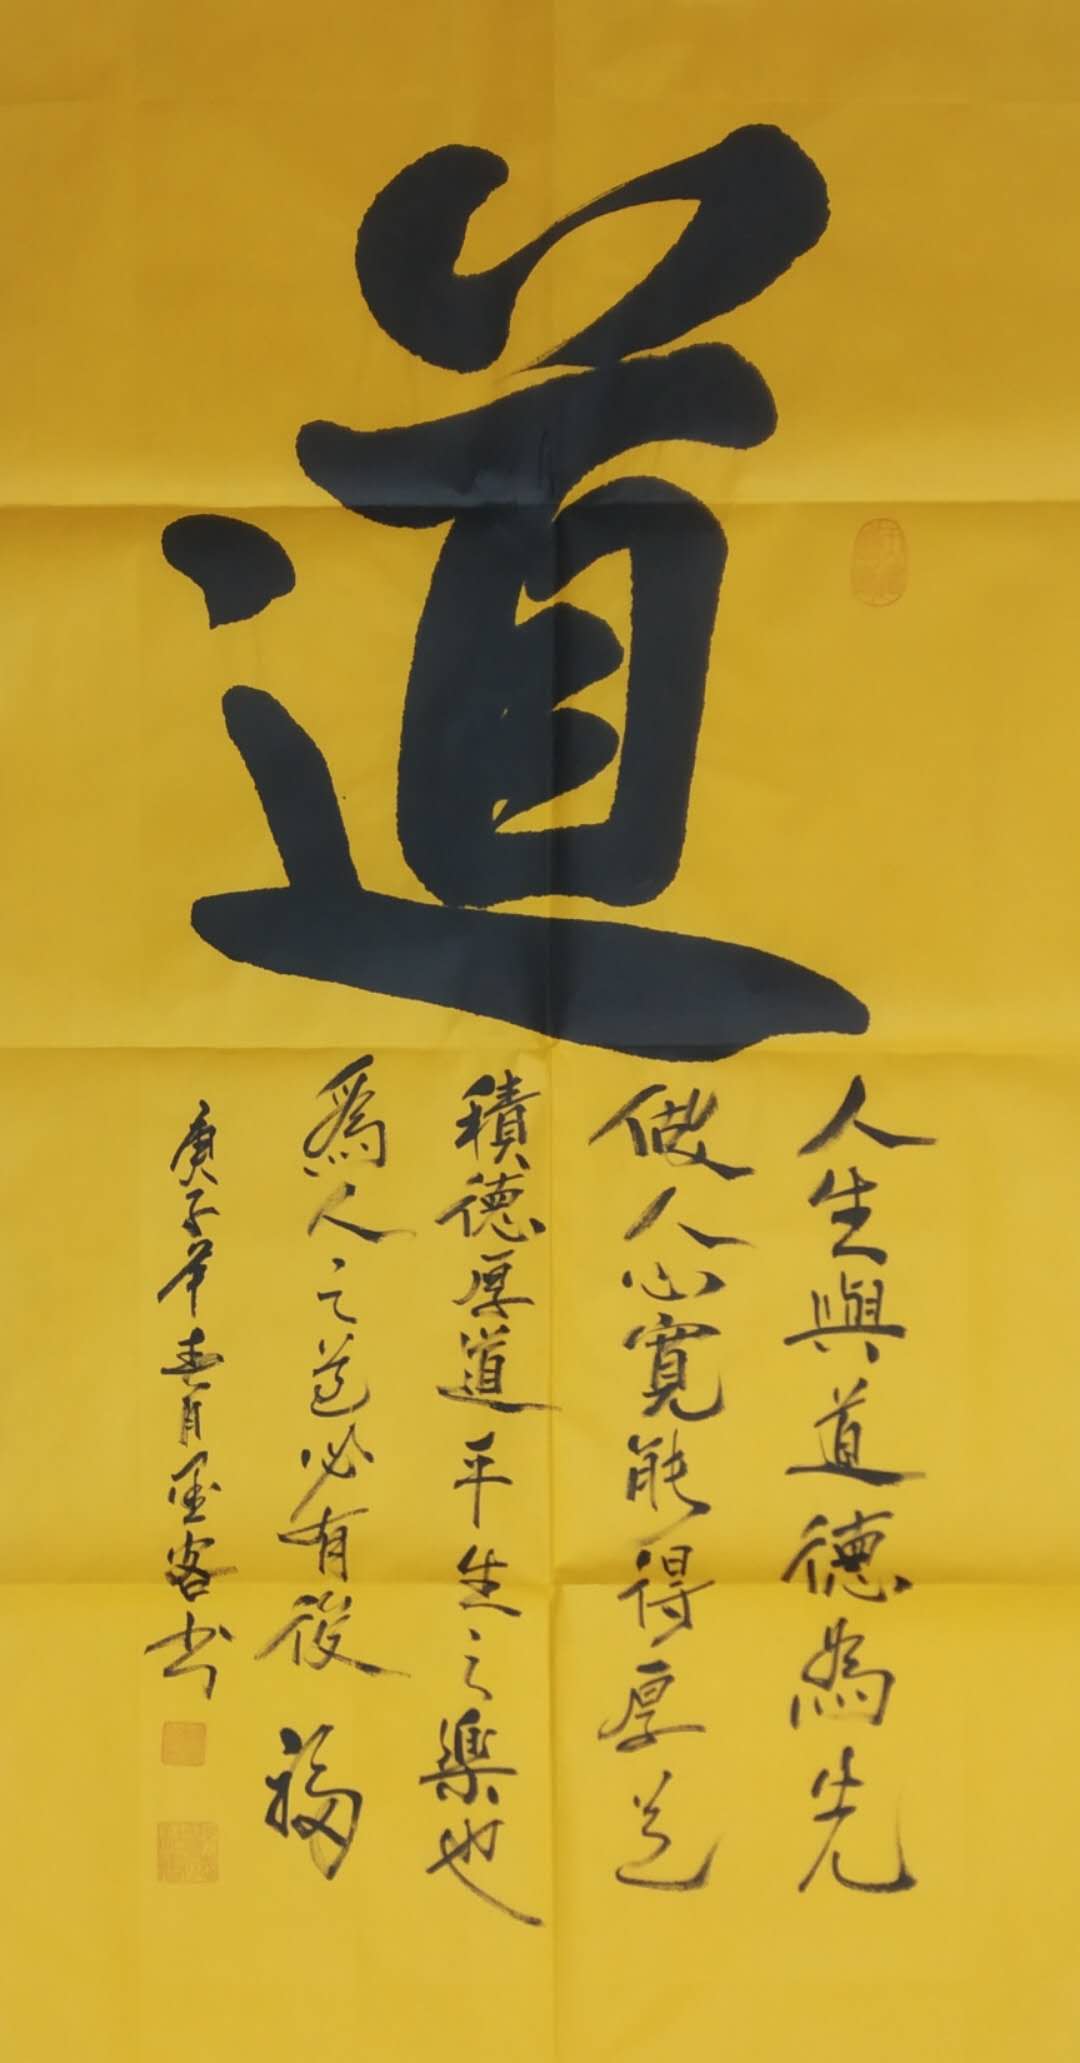 道
人生與道德為先
做人心寬能得厚道
積德厚道平生之樂也
為人之道必有後福
庚子年春月墨客书